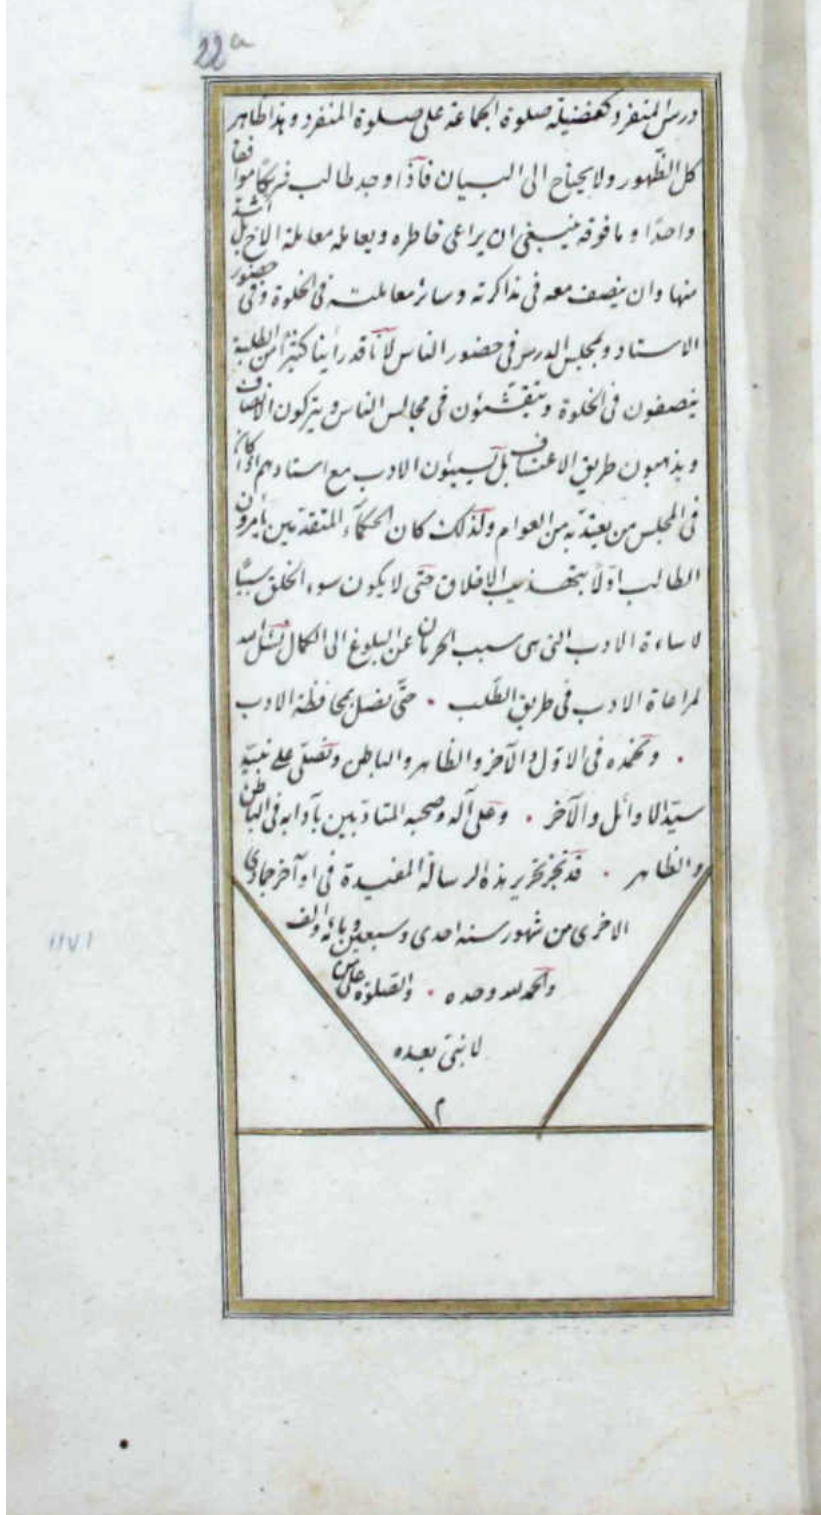 22a
درس المنفرد كفضيلة صلوة الجماعة على صلوة المنفرد وهذا ظاهر
كل الظهور ولا يحتاج الى البيان فاذا وجد طالب شريكا موافقا
واحدا وما فوقه ينبغى ان يراعى خاطره ويعامله معاملة الاخ بل اشد
منها وان ينصف معه فى مذاكرته وسائر معاملته فى الخلوة وفى حضور
الاستاد ومجلس الدرس فى حضور الناس لانا قد رأينا كثيرا من الطلبة
ينصفون فى الخلوة فى مجالس الناس ويتركون الانصاف
ويذهبون طريق الاعتساف بل يسيئون الادب مع استادهم اذا كان
فى المجلس من يعتد به من العوام ولذلك كان الحكماء المتقدمين يأمرون
الطالب اولا بتهذيب الاخلاق حتى لا يكون سوء الخلق سببا
لاساءة الادب التى هى سبب الحرمان عن البلوغ الى الكمال
لمراعاة الادب فى طريق الطلب · حتى نصل بمحافظة الادب
· ونحمده فى الاول والآخر والظاهر والباطن ونصلى على نبيه
سيد الاوائل والآخر · وعلى آله وصحبه المتادبين بآدابه فى الباطن
والظاهر · قد نجز تحرير هذه الرسالة المفيدة فى اواخر جمادى
الاخرى من شهور سنة احدى وسبعين ومائة والف
والحمد لله وحده · والصلوة على من
لا نبى بعده
م
1171